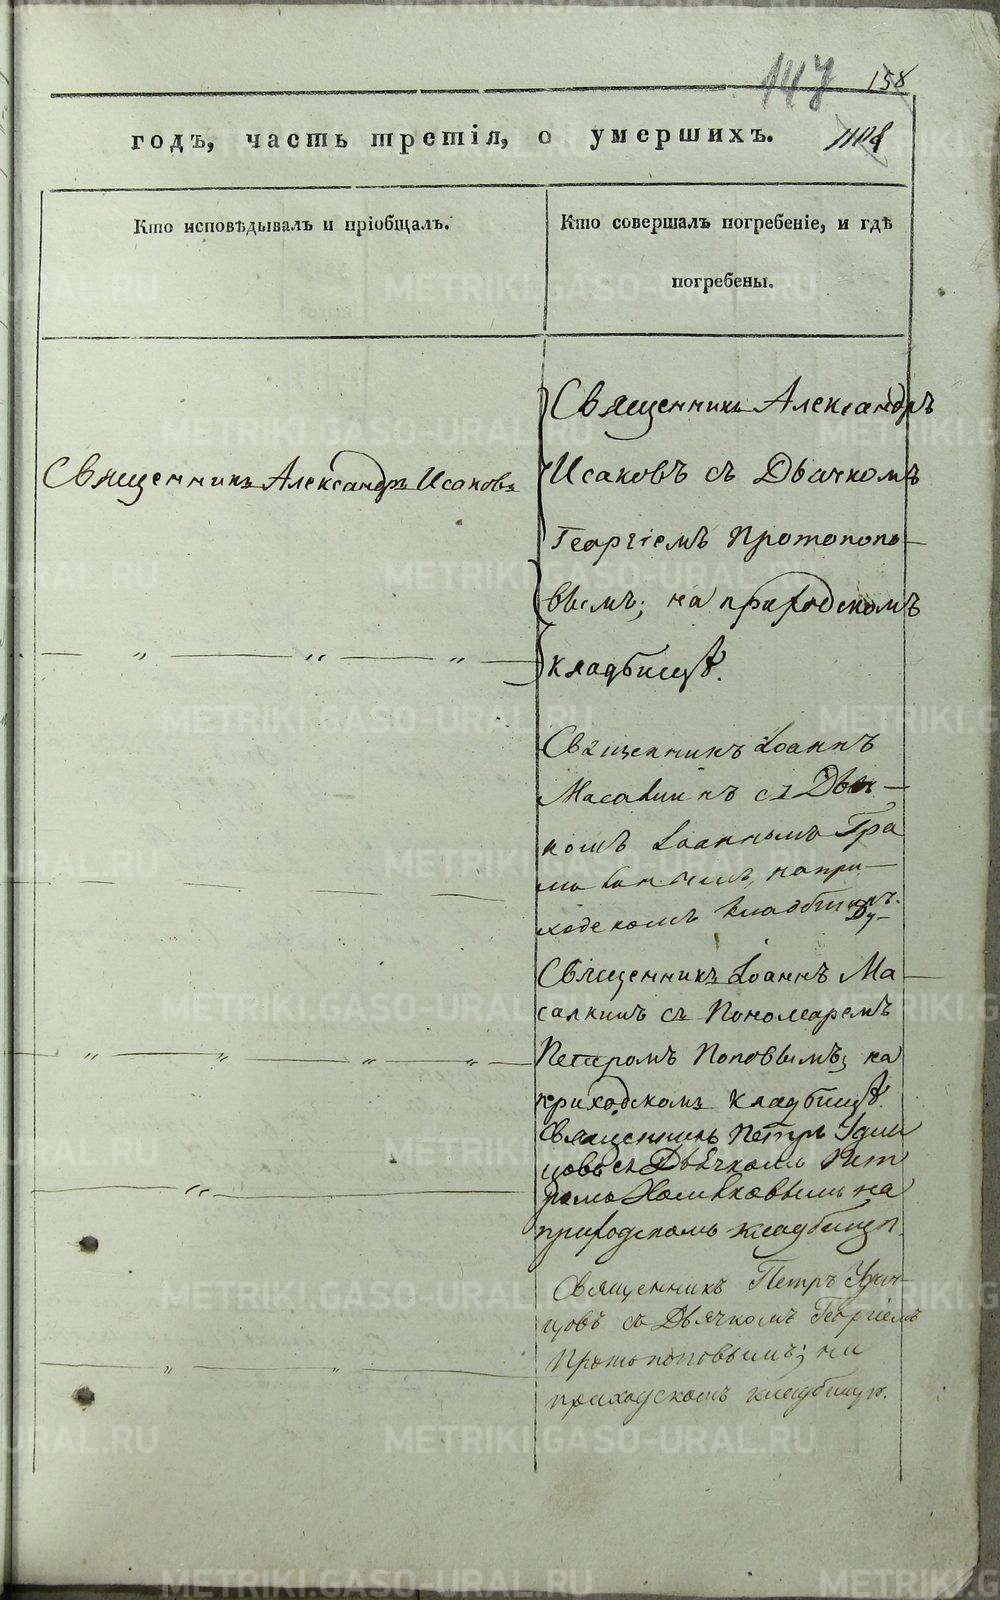 147 158
годъ, часть третія, о умершихъ.
Кто исповѣдывалъ и пріобщалъ.
Кто совершалъ погребеніе, и гдѣ
погребены.
Священникъ Александръ Исаковъ
Священникъ Александръ
Исаковъ съ Дьячкомъ
Георгіемъ Протопопо-
вымъ; на приходскомъ
кладбищѣ.
Священникъ Іоаннъ
съ
комъ Іоанномъ
на при-
ходскомъ
Священникъ Іоаннъ Ма-
салкинъ съ Пономаремъ
Петромъ Поповымъ; на
приходскомъ кладбищѣ.
Священникъ Петръ Удин
цовъ съ Дьячкомъ Пет
ромъ Хомяковымъ на
приходскомъ кладбищѣ.
Священникъ Петръ Удин-
цовъ съ Дьячкомъ Георгіемъ
Протопоповымъ; на
приходскомъ кладбищѣ.
METRIKI.GASO-URAL.RU